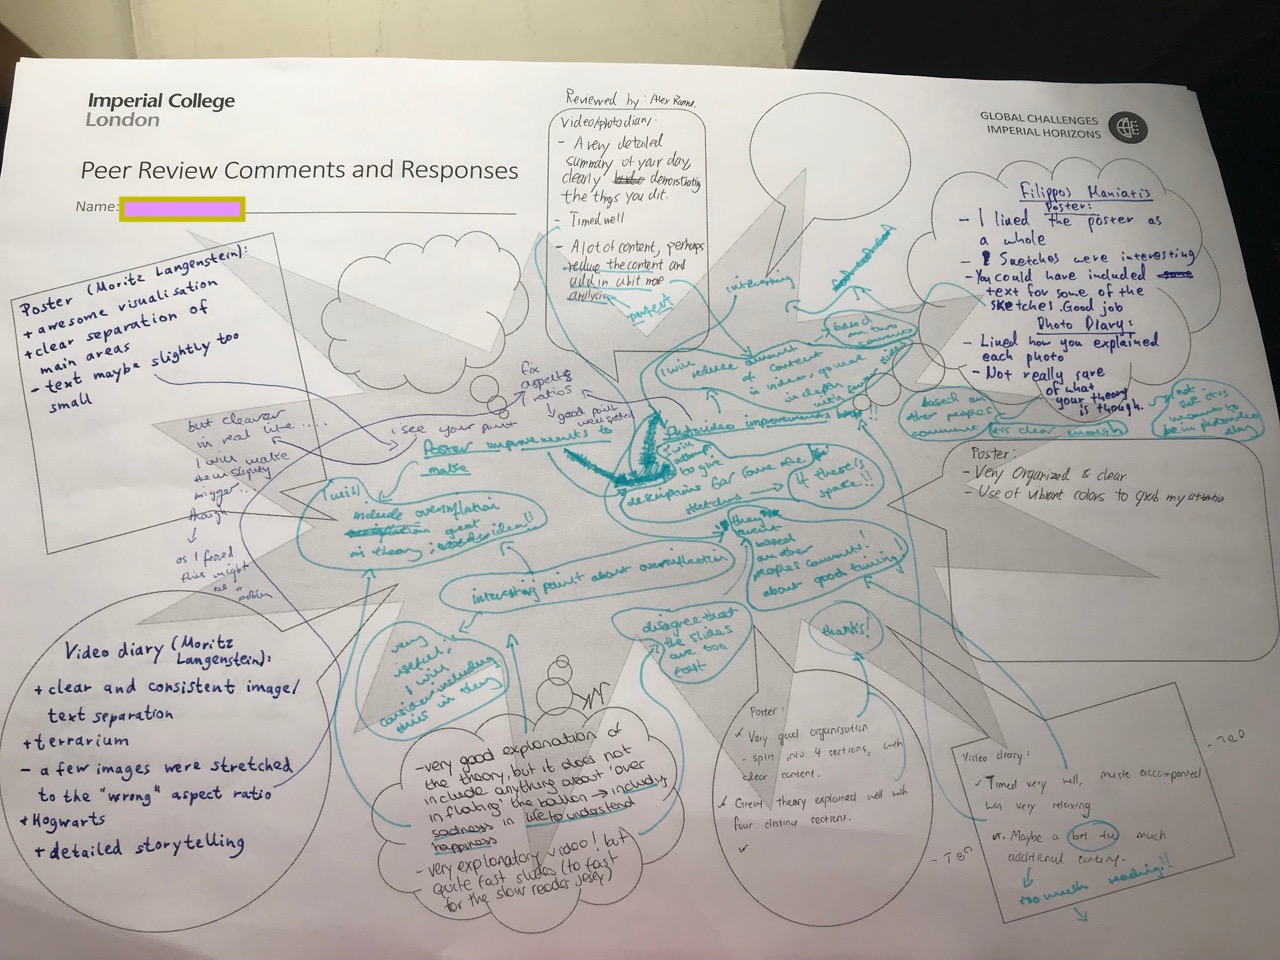 Imperial College
London
Peer Review Comments and Responses
Name:
GLOBAL CHALLENGES
IMPERIAL HORIZONS
Reviewed by: Alex
Video/photo diary:
- A very detailed
summary of your day,
clearly demonstrating
the things you did.
- Timed well
- A lot of content, perhaps
reduce the content and
add in a bit more
analysis
perfect
interesting
Filippos Maniatis
Poster:
- I liked the poster as
a whole
- Sketches were interesting
- You could have included
text for some of the
sketches. Good job
Photo Diary:
- Liked how you explained
each photo
- Not really sure
of what
your theory
is though.
Poster (Moritz Langenstein):
+ awesome visualisation
+ clear separation of
main areas
- text maybe slightly too
small
but clearer
in real life ....
I will make
them slightly
bigger...
though
as I feared
this might
be a
i see your point
fix
aspect
ratios
good point
well spotted
Poster improvements to
make
I will
include overinflation
great
in theory:
interesting point about overinflation
very
useful;
I will
consider including
this in theory
I will
reduce amount
of content
in video, go more
in depth
with
based
on two
comments
improvements
I will
attempt
to give
descriptions for some of the
sketches
if there is
space!!
based on
other peoples
comment
it is clear
not
sure it is
meant to
be in
Poster:
- Very organized & clear
- Use of vibrant colors to grab my attention
based
on other
peoples comments!
about good timing
disagree that
the slides
are too
fast
thanks!
Video diary (Moritz
Langenstein):
+ clear and consistent image/
text separation
+ terrarium
- a few images were stretched
to the "wrong" aspect ratio
+ Hogwarts
+ detailed storytelling
- very good explanation of
the theory, but it does not
include anything about 'over
inflating' the balloon → including
sadness in life to understand
happiness
- very explanatory video! but
quite fast slides (to fast
for the slow reader
Poster:
✓ Very good organisation
- split into 4 sections, with
clear content.
✓ Great theory explained well with
four distinct sections.
✓
Video diary:
✓ Timed very well, music accompanied
was very relaxing
Maybe a bit too much
additional content.
too much reading!!
- TED